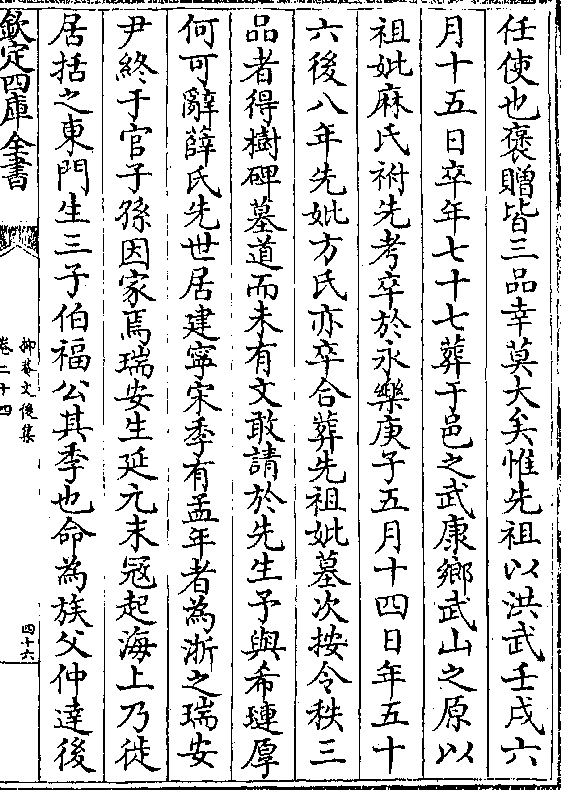 任使也褒贈皆三品幸莫大矣惟先祖以洪武壬戌六
月十五日卒年七十七葬于邑之武康鄉武山之原以
祖妣麻氏祔先考卒於永樂庚子五月十四日年五十
六後八年先妣方氏亦卒合葬先祖妣墓次按令秩三
品者得樹碑墓道而未有文敢請於先生予與希璉厚
何可辭薛氏先世居建寧宋季有孟年者為浙之瑞安
尹終于官子孫因家焉瑞安生延元末冦起海上乃徙
居括之東門生三子伯福公其季也命為族父仲達後
欽定四庫全書
抑菴文後集
卷二十四
四十六